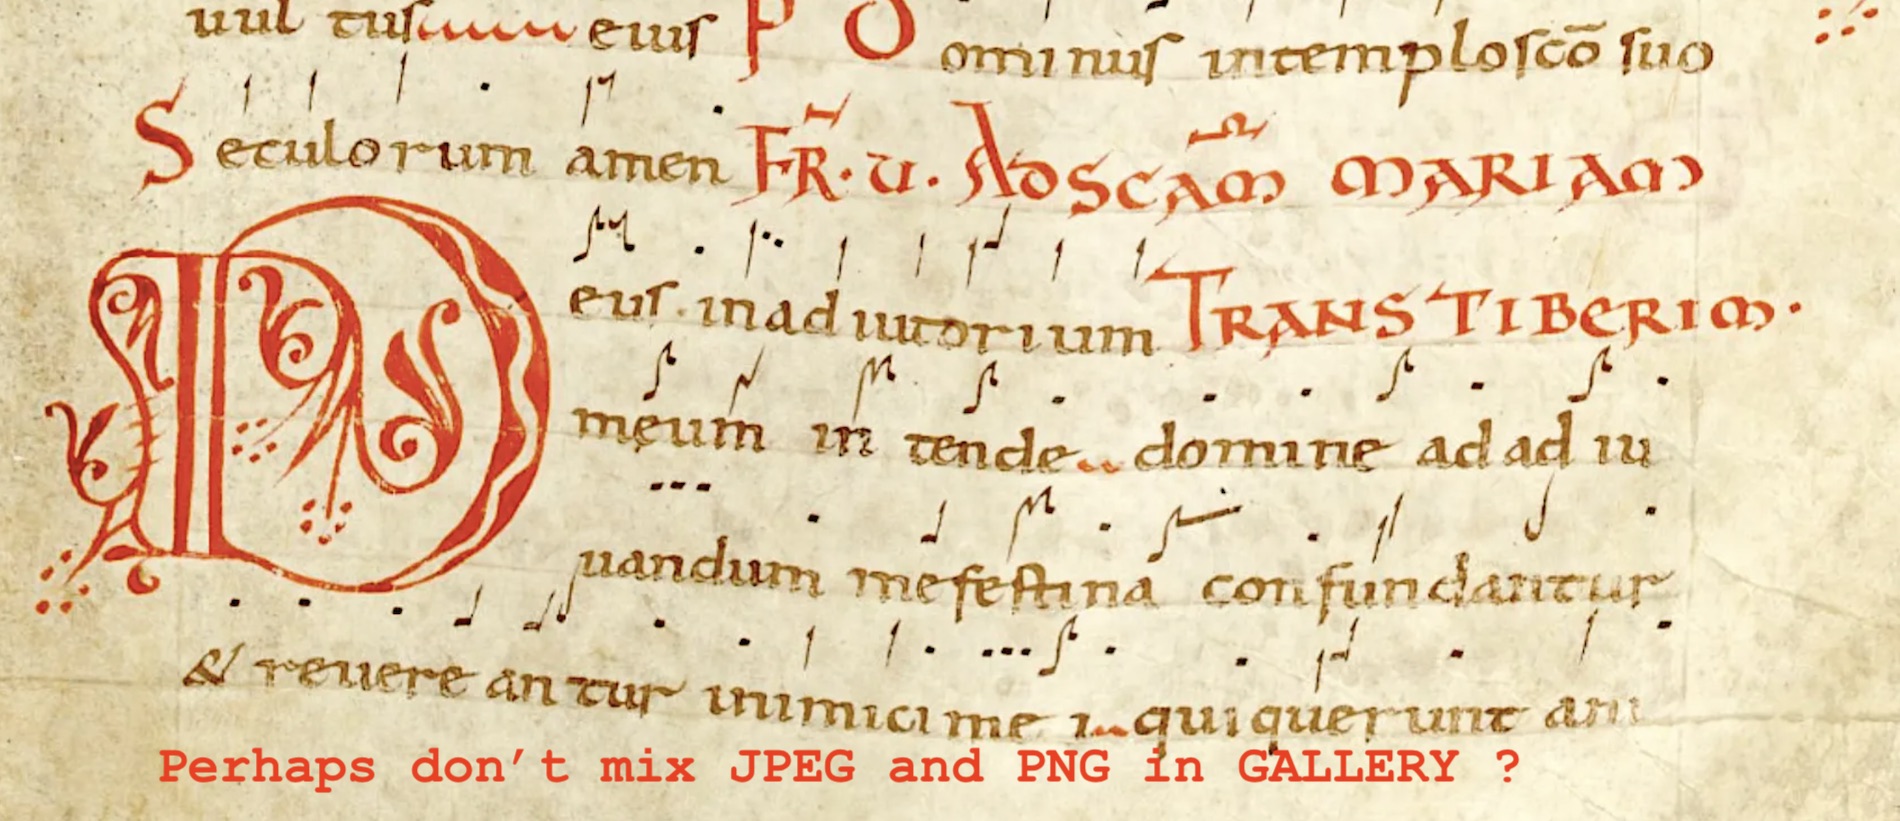 uul tus eius P D ominus intemplo scō suo
S eculorum amen FR̄. V. AD SCAM̄ MARIAM
D eus in ad iutorium TRANS TIBERIM.
meum in tende domine ad ad iu
uandum me festina confundantur
& reuere an tur inimici me i qui querunt ani
Perhaps don’t mix JPEG and PNG in GALLERY ?